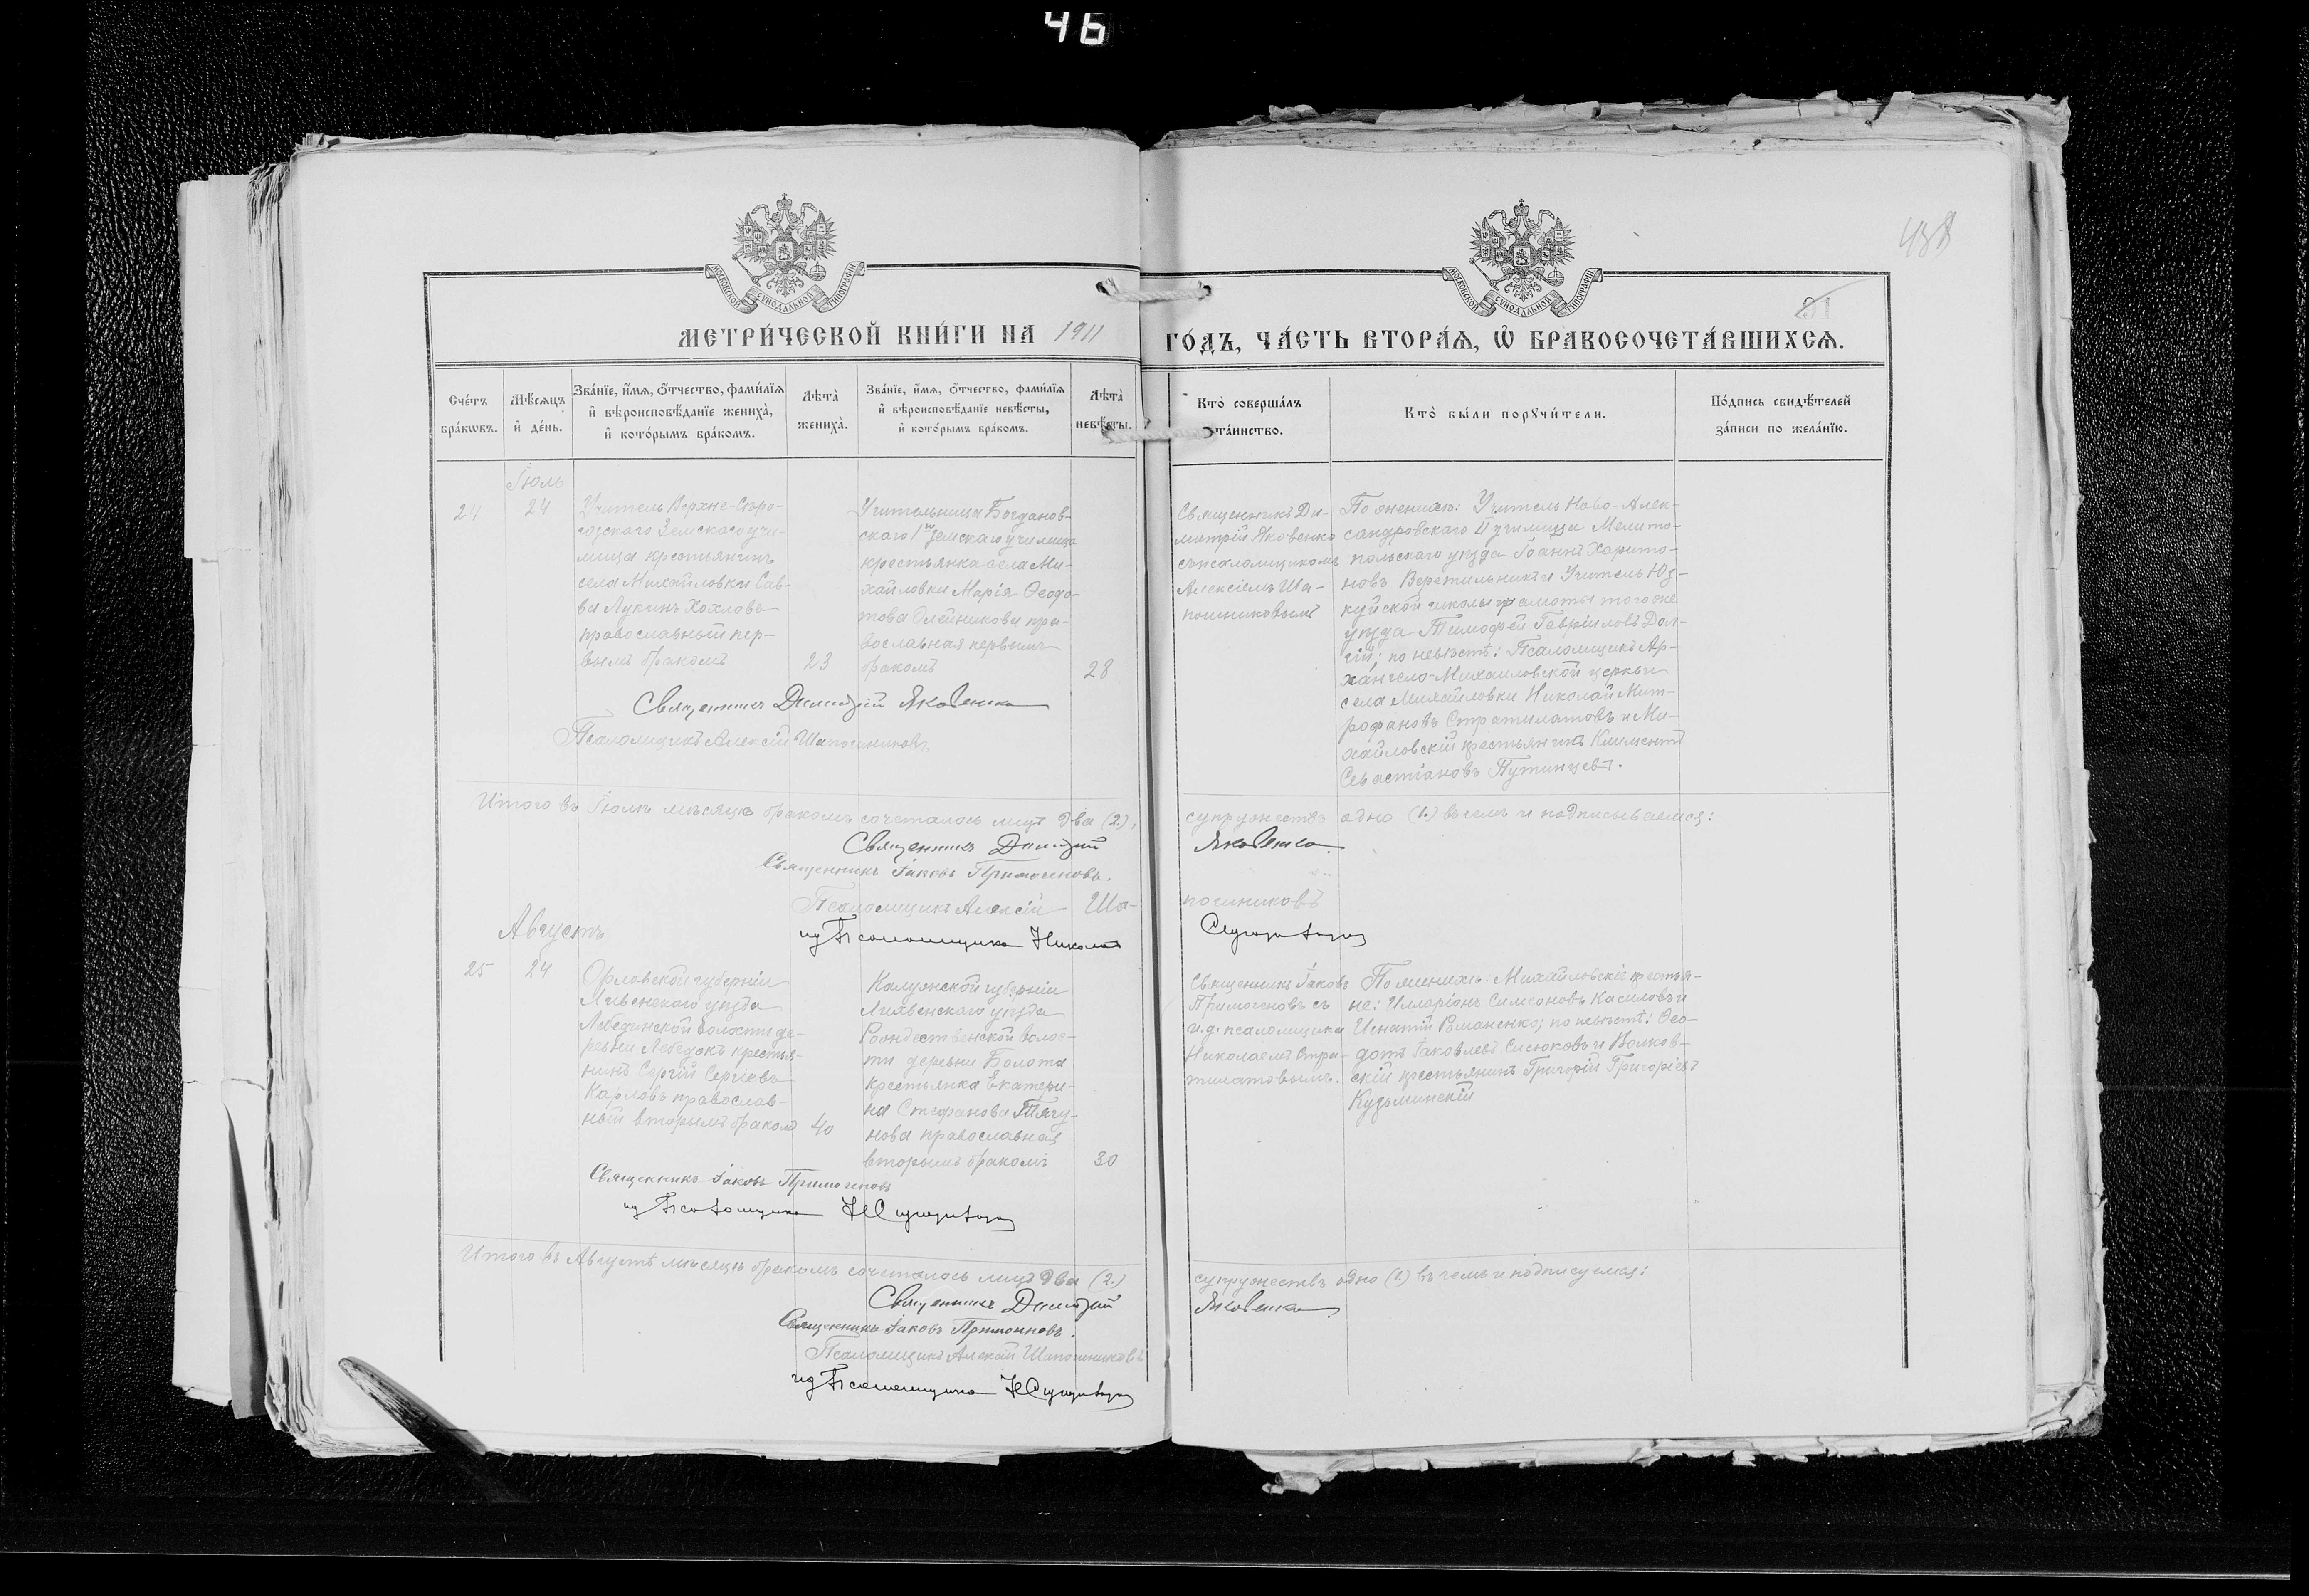 46
438
31
МОСКОВСКОЙ СѴНОДАЛЬНОЙ ТИПОГРАФІИ
МОСКОВСКОЙ СѴНОДАЛЬНОЙ ТИПОГРАФІИ
МЕТРИ́ЧЕСКОЙ КНИ́ГИ НА 1911
ГО́ДЪ, ЧА́СТЬ ВТОРА́Ѧ, Ѡ҆ БРАКОСОЧЕТА́ВШИХСѦ.
Сче́тъ
бра́кѡвъ.
Мѣ́сѧцъ
и҆ де́нь.
Зва́нїе, и҆́мѧ, ѻ҆́тчество, фами́лїѧ
и҆ вѣроисповѣ́данїе жениха̀,
и҆ кото́рымъ бра́комъ.
Лѣта̀
жениха̀.
Зва́нїе, и҆́мѧ, ѻ҆́тчество, фами́лїѧ
и҆ вѣроисповѣ́данїе невѣ́сты,
и҆ кото́рымъ бра́комъ.
Лѣта̀
невѣ́сты.
Кто̀ соверша́лъ
та́инство.
Кто̀ бы́ли порꙋчи́тели.
По́дпись свидѣ́телей
за́писи по жела́нїю.
Іюль
24
24
Учитель Верхне-Сѣро-
гозскаго Земскаго учи-
лища крестьянинъ
села Михайловки Сав-
ва Лукинъ Хохловъ
православный пер-
вымъ бракомъ
23
Учительница Богданов-
скаго 1го Земскаго училища
крестьянка села Ми-
хайловки Марія Ѳеодо-
това Олейникова пра-
вославная первымъ
бракомъ
28
Священникъ Ди-
митрій Яковенко
съ псаломщикомъ
Алексіемъ Ша-
пошниковымъ
По женихѣ: Учитель Ново-Алек-
сандровскаго II училища Мелито-
польскаго уѣзда Іоаннъ Харито-
новъ Веретильникъ и Учитель Юз-
куйской школы грамоты того же
уѣзда Тимофей Гавріиловъ Дол-
гій; по невѣстѣ: Псаломщикъ Ар-
хангело-Михаиловской церкви
села Михайловки Николай Мит-
рофановъ Стратилатовъ и Ми-
хайловскій крестьянинъ Климентъ
Севастіановъ Путинцевъ.
Священникъ Димитрій Яковенко
Псаломщикъ Алексій Шапошниковъ
Итого въ Іюлѣ мѣсяцѣ бракомъ сочеталось лицъ два (2),
супружествъ одно (1.) въ чемъ и подписываемся:
Священникъ Димитрій
Яковенко.
Священникъ Іаковъ Примогеновъ.
Псаломщикъ Алексій Ша-
пошниковъ
ид Псаломщика Николай
Стратилатовъ
Августъ
25
24
Орловской губерніи
Ливенскаго уѣзда
Лебединской волости де-
ревни Лебедокъ крестья-
нинъ Сергій Сергіевъ
Карловъ православ-
ный вторымъ бракомъ
40
Калужской губерніи
Лихвенскаго уѣзда
Рождественской волос-
ти деревни Болота
крестьянка Екатери-
на Стефанова Тягу-
нова православная
вторымъ бракомъ
30
Священникъ Іаковъ
Примогеновъ съ
и.д. псаломщика
Николаемъ Стра-
тилатовымъ.
По женихѣ: Михайловскіе крестья-
не: Илларіонъ Симеоновъ Касиловъ и
Игнатій Романенко; по невѣстѣ: Ѳео-
дотъ Іаковлевъ Сисюковъ и Волков-
скій крестьянинъ Григорій Григоріевъ
Кузьминскій
Священникъ Іаковъ Примогеновъ
ид Псаломщика Н Стратилатовъ
Итого въ Августѣ мѣсяцѣ бракомъ сочеталось лицъ два (2.)
супружествъ одно (1) въ чемъ и подписуемся:
Священникъ Димитрій
Яковенко.
Священникъ Іаковъ Примогеновъ.
Псаломщикъ Алексій Шапошниковъ
ид Псаломщика Н Стратилатовъ